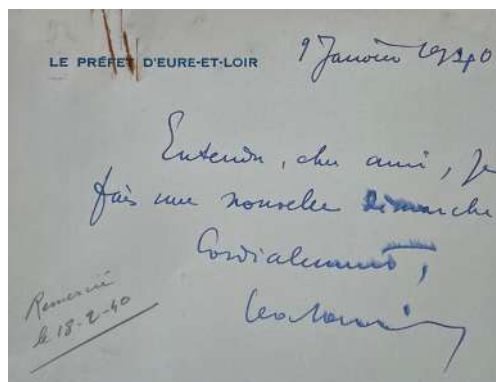 LE PRÉFET D'EURE-ET-LOIR
9 Janvier 1940
Entendu, cher ami, je
fais une nouvelle démarche
Cordialement,
Remercié
le 18-2-40